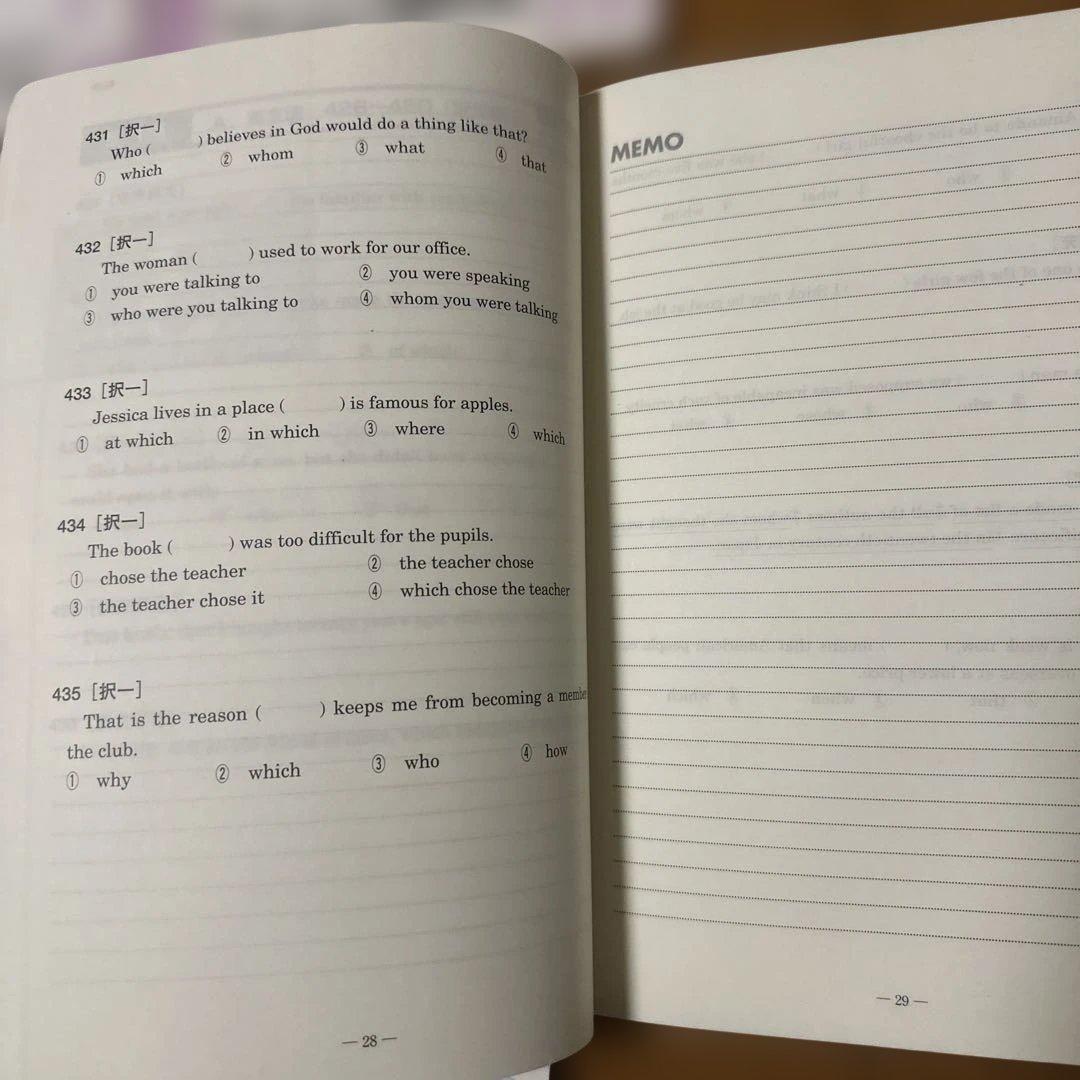 431 [択一]
Who ( ) believes in God would do a thing like that?
① which ② whom ③ what ④ that
432 [択一]
The woman ( ) used to work for our office.
① you were talking to ② you were speaking
③ who were you talking to ④ whom you were talking
433 [択一]
Jessica lives in a place ( ) is famous for apples.
① at which ② in which ③ where ④ which
434 [択一]
The book ( ) was too difficult for the pupils.
① chose the teacher ② the teacher chose
③ the teacher chose it ④ which chose the teacher
435 [択一]
That is the reason ( ) keeps me from becoming a membe
the club.
① why ② which ③ who ④ how
— 28 —
MEMO
— 29 —